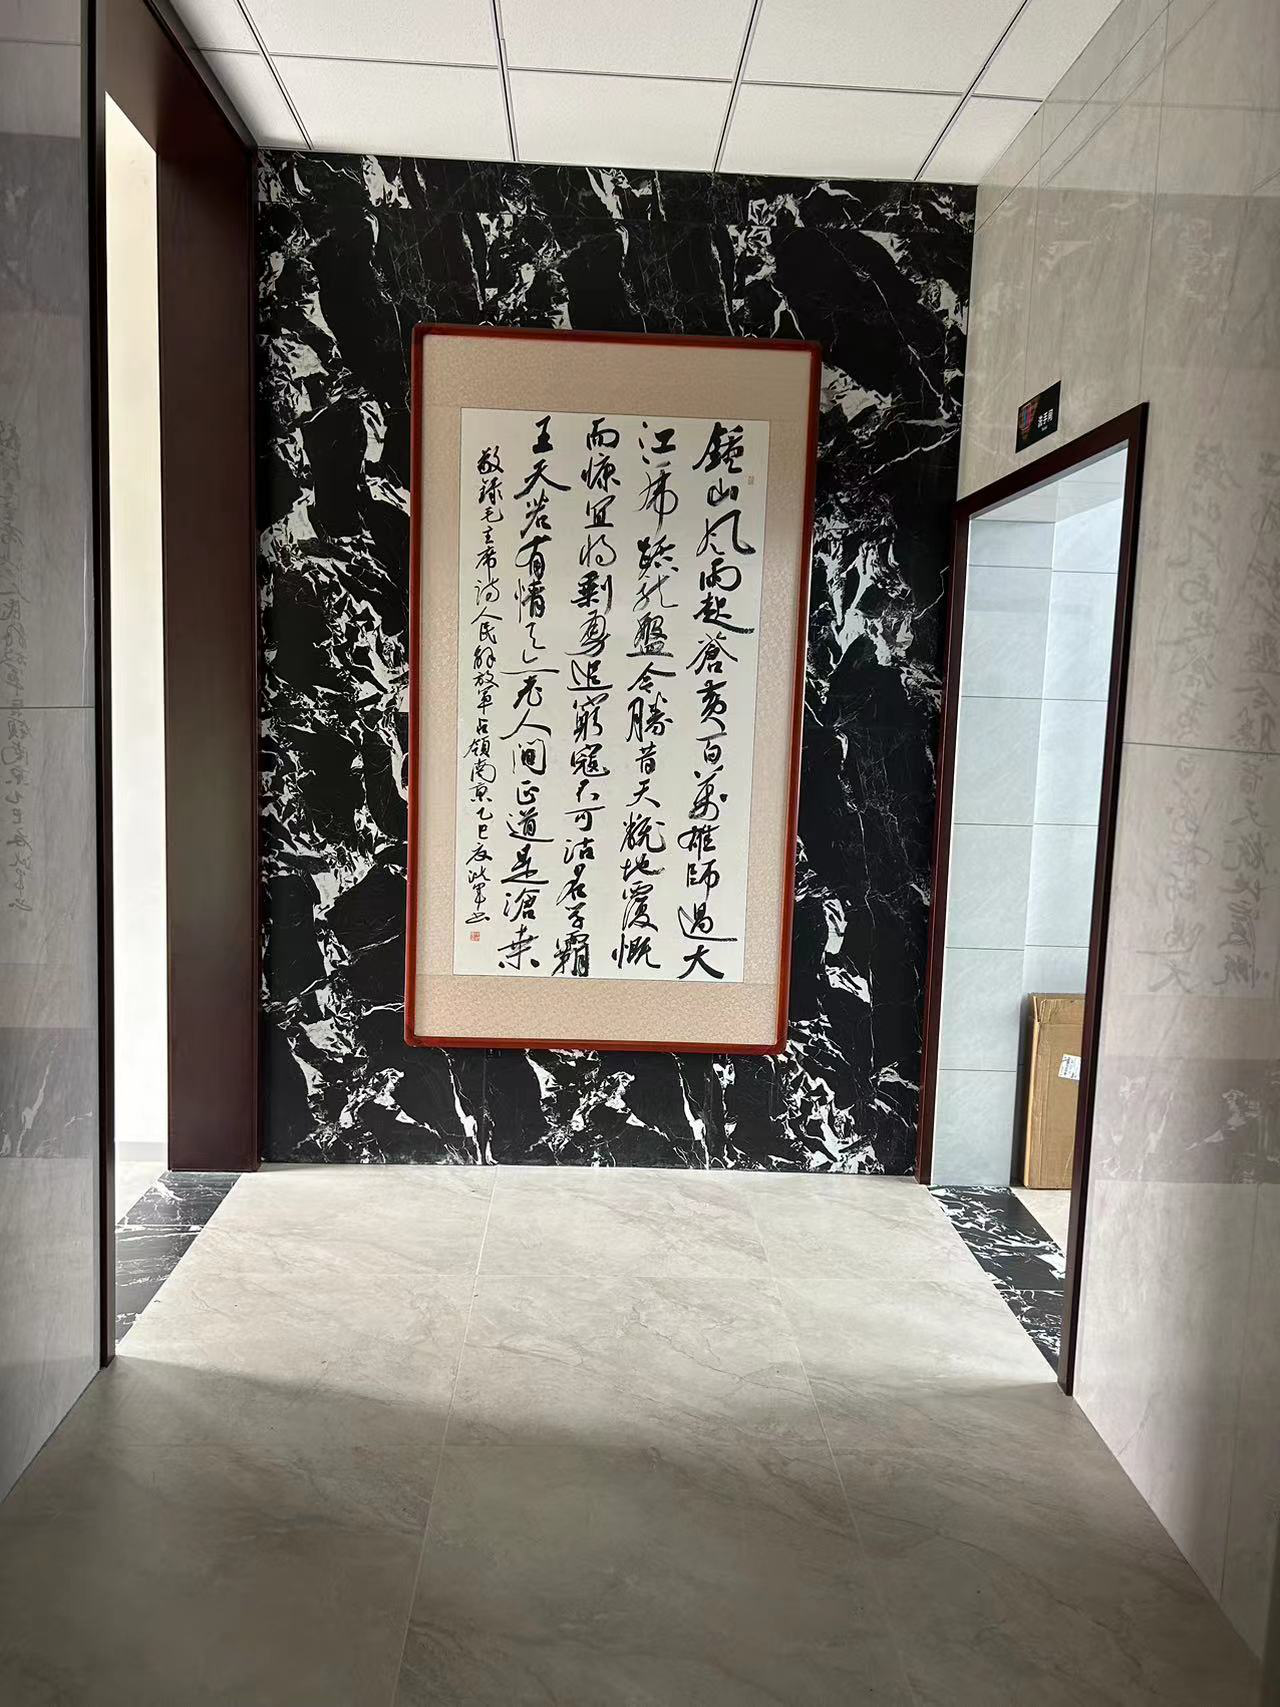 鐘山风雨起蒼黄百萬雄師過大
江虎踞龙盤今勝昔天翻地覆慨
而慷宜将剩勇追窮寇不可沽名学霸
王天若有情天亦老人间正道是滄桑
敬録毛主席诗人民解放軍占領南京乙巳夏
洗手间